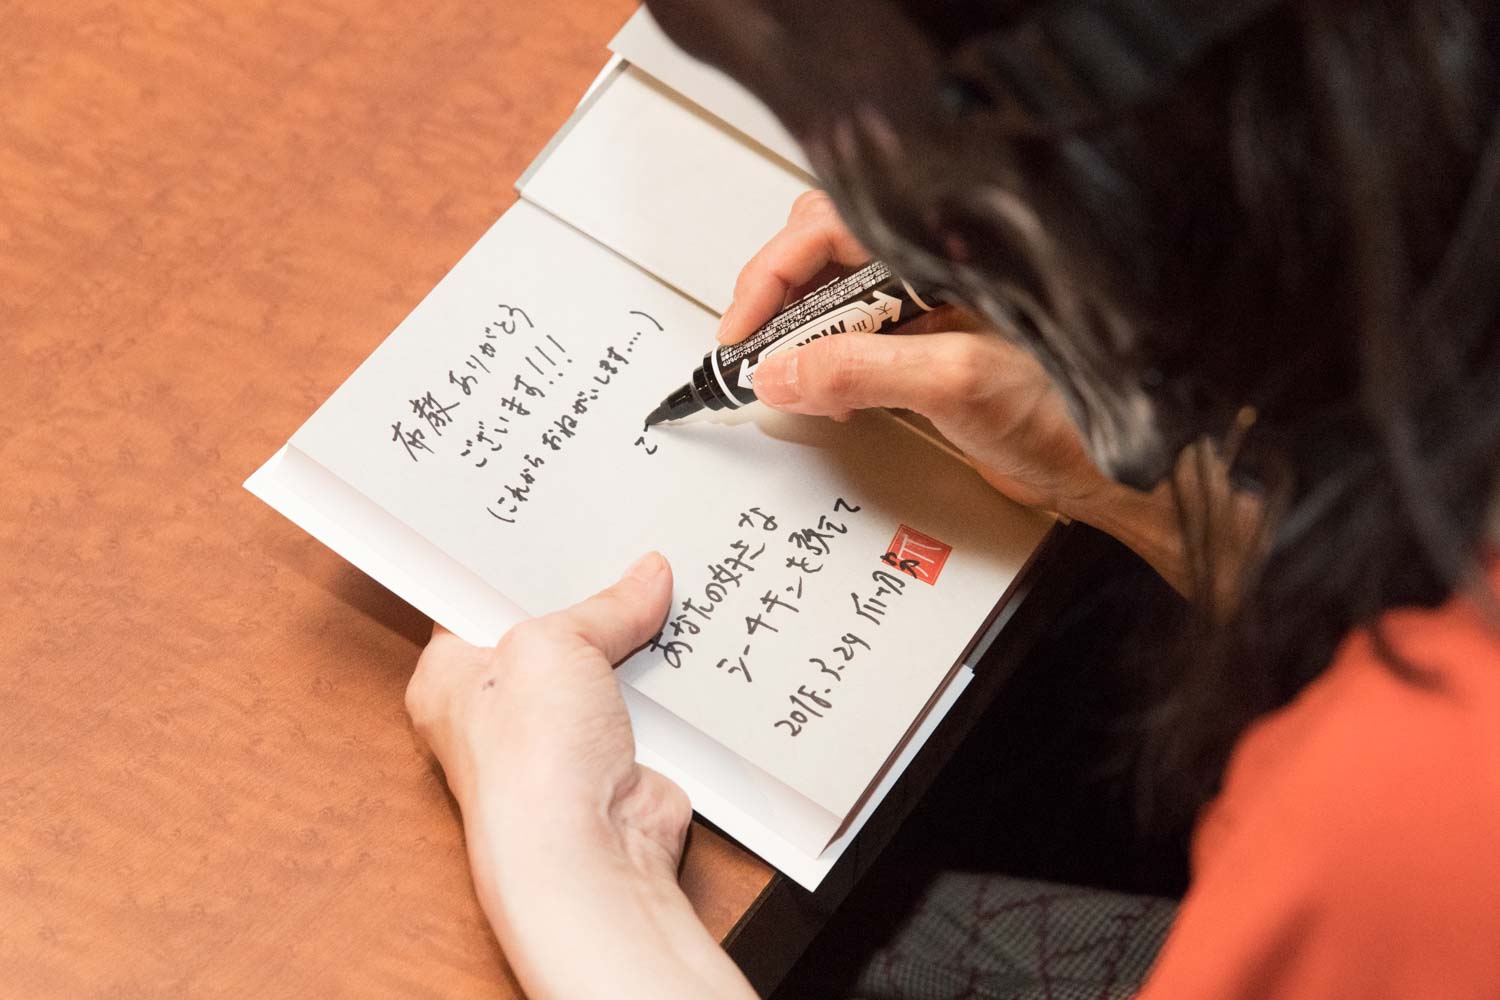 布教ありがとう
ございます!!!
(これからおねがいします.....)
あなたの好きな
シーチキンを教えて
2018.3.29